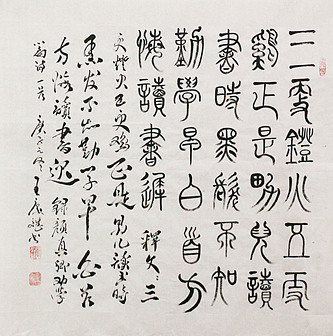 三更鐙火五更
雞正是男兒讀
書時黑髮不知
勤學早白首方
悔讀書遲 釋文三
更燈火五更鷄正是男兒讀書時
黑发不知勤学早白首
方悔讀書遲 錄顏真卿勸学
詩一首